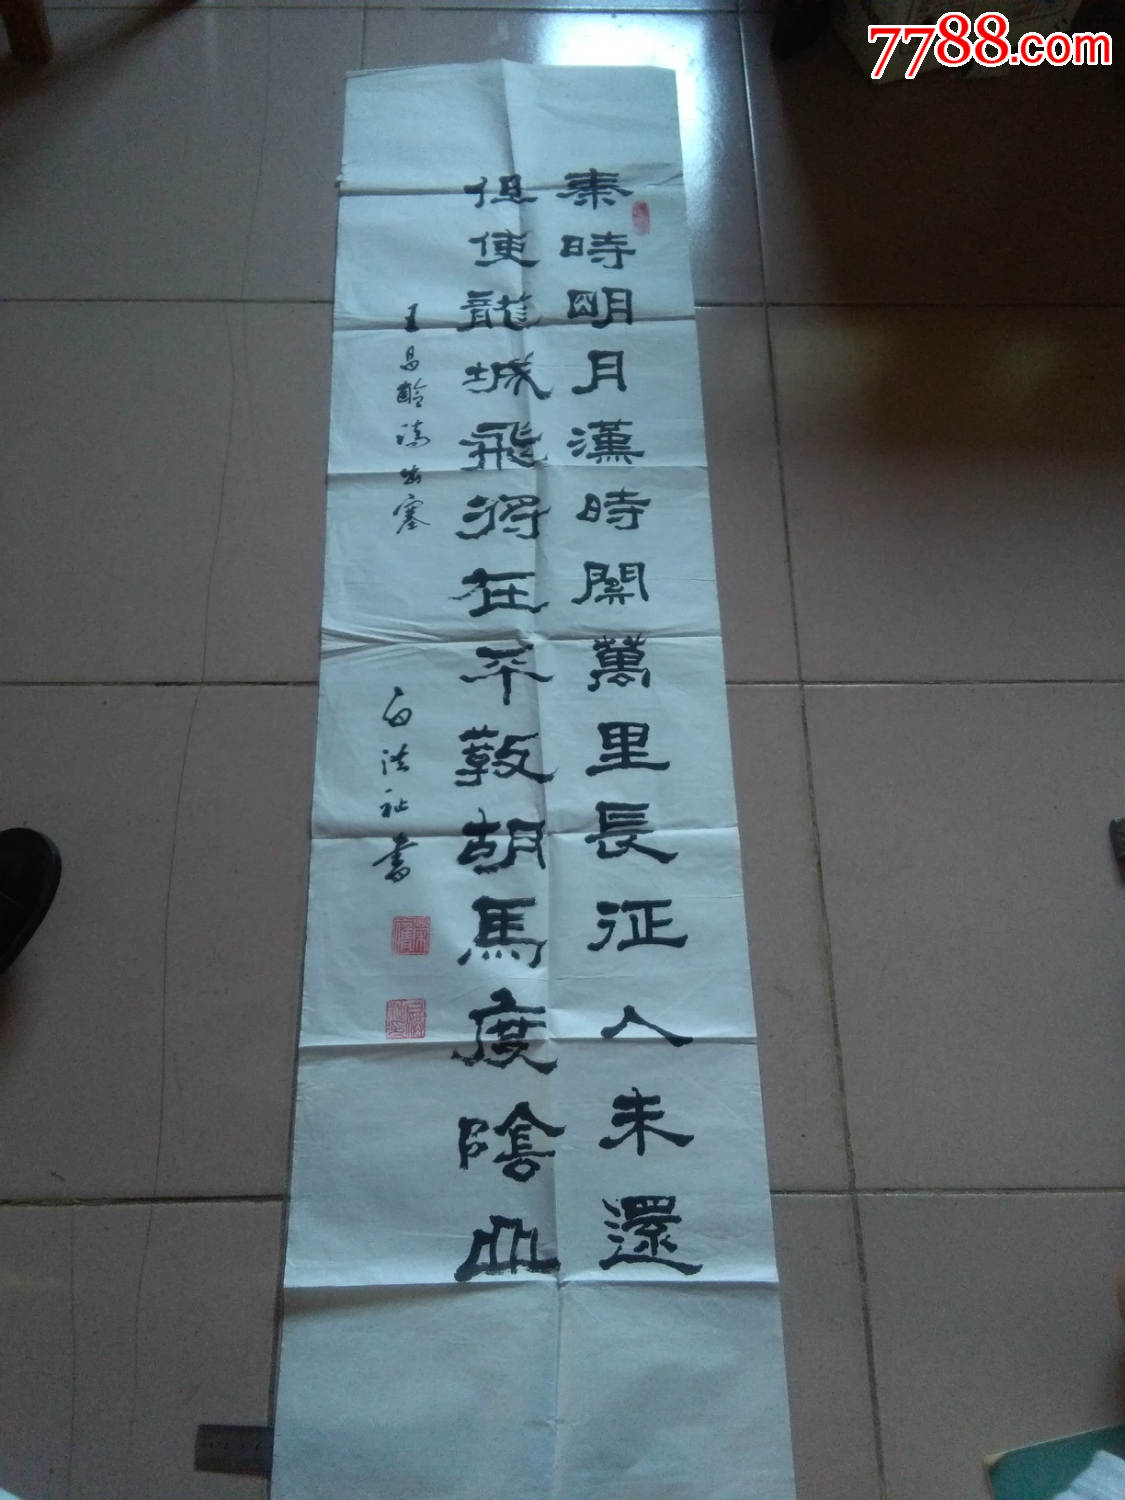 7788.com
秦時明月漢時關萬里長征人未還
但使龍城飛將在不敎胡馬度陰山
王昌齡詩出塞
白法祉書